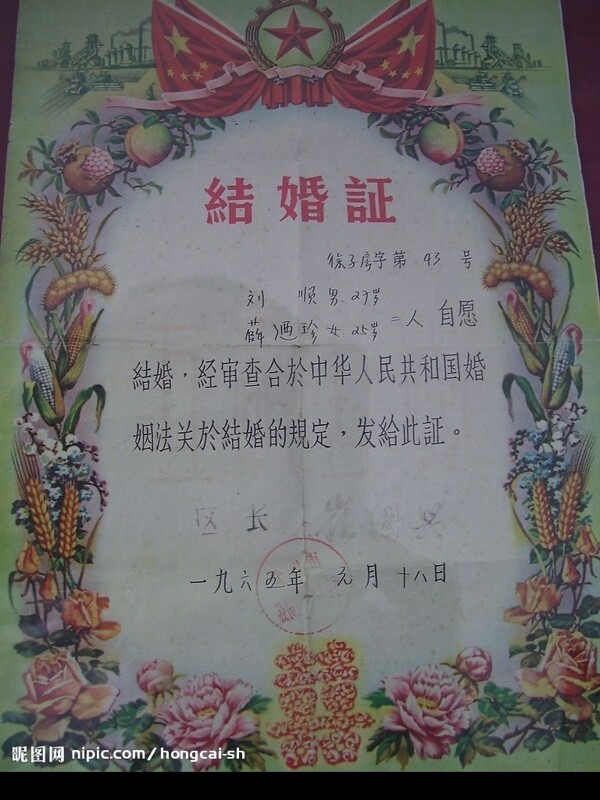 結婚証
徐子房字第 43 号
刘 顺 男.27岁
薛迺珍 女.25岁 二人 自愿
結婚，经审查合於中华人民共和国婚
姻法关於結婚的規定，发給此証。
区 长
一九六五年 元月 十八日
昵图网 nipic.com/hongcai-sh